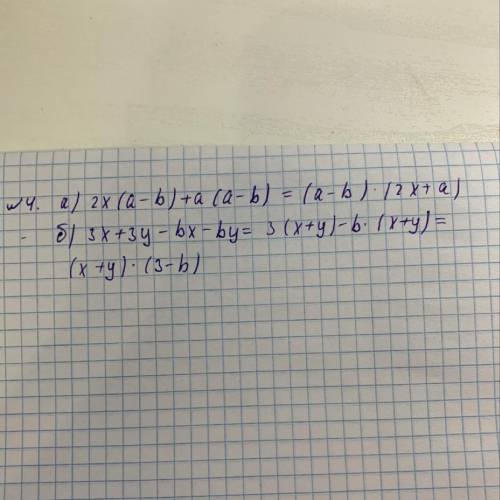 №4. а) 2x(a-b)+a(a-b) = (a-b)·(2x+a)
б) 3x+3y-bx-by= 3(x+y)-b·(x+y)=
(x+y)·(3-b)